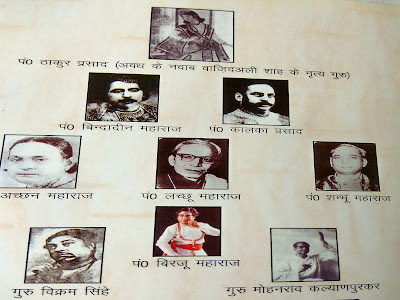 पं0 ठाकुर प्रसाद (अवध के नवाब वाजिदअली शाह के नृत्य गुरु)
पं0 बिन्दादीन महाराज पं0 कालका प्रसाद
अच्छन महाराज पं0 लच्छू महाराज पं0 शम्भू महाराज
पं0 बिरजू महाराज
गुरु विक्रम सिंहे गुरु मोहनराव कल्याणपुरकर